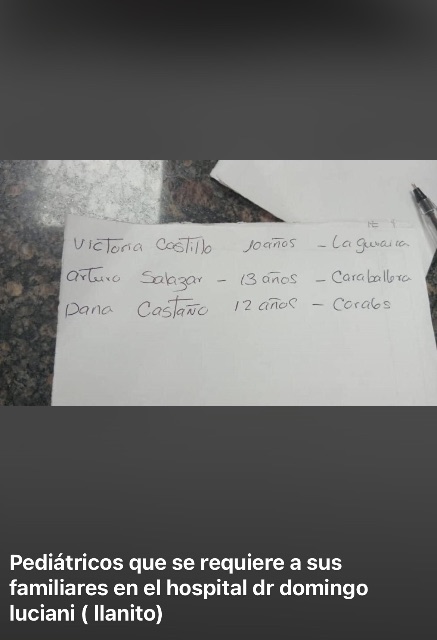 Victoria Castillo 10años - La guaira
Arturo Salazar - 13 años - Caraballera
Dana Castaño 12 años - Carabs
Pediátricos que se requiere a sus
familiares en el hospital dr domingo
luciani ( llanito)